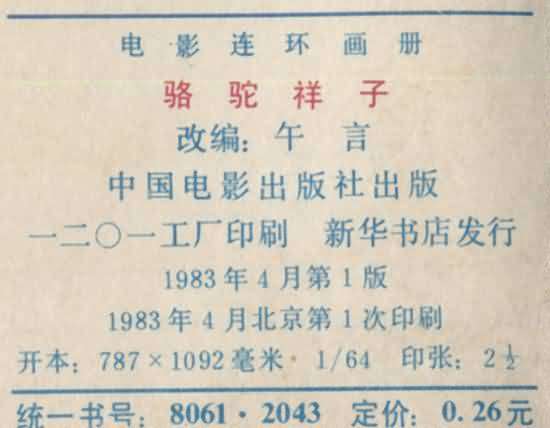 电影连环画册
骆驼祥子
改编：午言
中国电影出版社出版
一二〇一工厂印刷 新华书店发行
1983年4月第1版
1983年4月北京第1次印刷
开本：787×1092毫米·1/64 印张：2½
统一书号：8061·2043 定价：0.26元